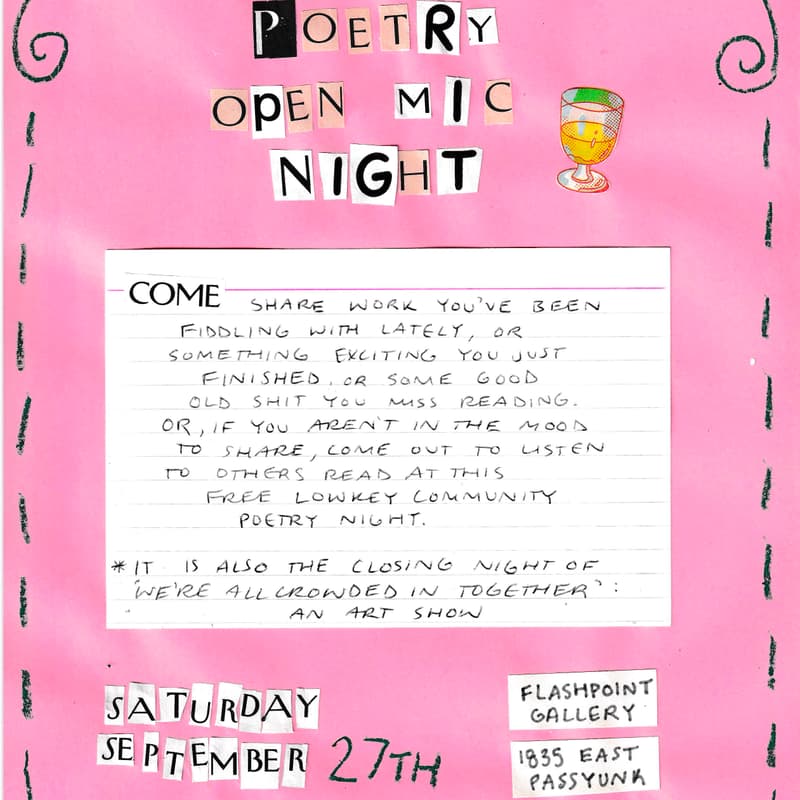 POETRY
OPEN MIC
NIGHT
COME SHARE WORK YOU'VE BEEN
FIDDLING WITH LATELY, OR
SOMETHING EXCITING YOU JUST
FINISHED, OR SOME GOOD
OLD SHIT YOU MISS READING.
OR, IF YOU AREN'T IN THE MOOD
TO SHARE, COME OUT TO LISTEN
TO OTHERS READ AT THIS
FREE LOWKEY COMMUNITY
POETRY NIGHT.
*IT IS ALSO THE CLOSING NIGHT OF
"WE'RE ALL CROWDED IN TOGETHER":
AN ART SHOW
SATURDAY
SEPTEMBER 27TH
FLASHPOINT
GALLERY
1835 EAST
PASSYUNK